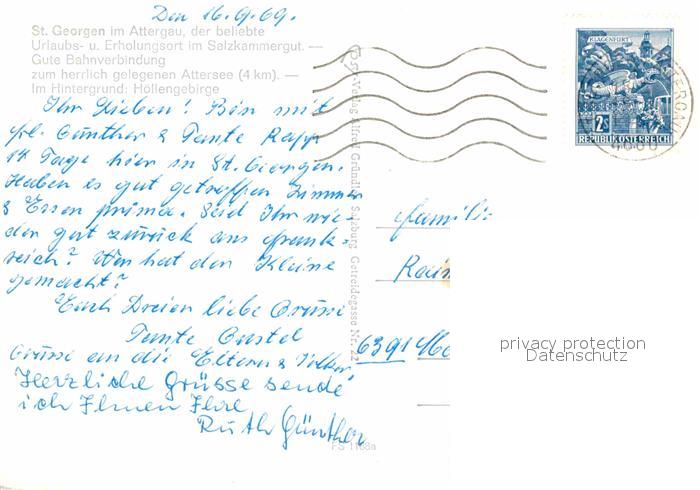 Den 16.9.69.
St. Georgen im Attergau, der beliebte
Urlaubs- u. Erholungsort im Salzkammergut. —
Gute Bahnverbindung
zum herrlich gelegenen Attersee (4 km). —
Im Hintergrund: Höllengebirge
Ihr Lieben! Bin mit
Frl. Günther & Tante Rapp
14 Tage hier in St. Georgen.
Haben es gut getroffen Zimmer
& Essen prima. Seid Ihr wie-
der gut zurück aus Frank-
reich? Was hat der Kleine
gemacht?
Euch Dreien liebe Grüsse
Tante Gustel
Grüsse an die Eltern & Volker
Herzliche Grüsse sende
ich Ihnen Ihre
Ruth Günther
FS 1168a
Verlag Alfred Gründler, Salzburg Getreidegasse Nr. 22
KLAGENFURT
2S
REPUBLIK ÖSTERREICH
ATTERGAU
Familie
6391
privacy protection
Datenschutz